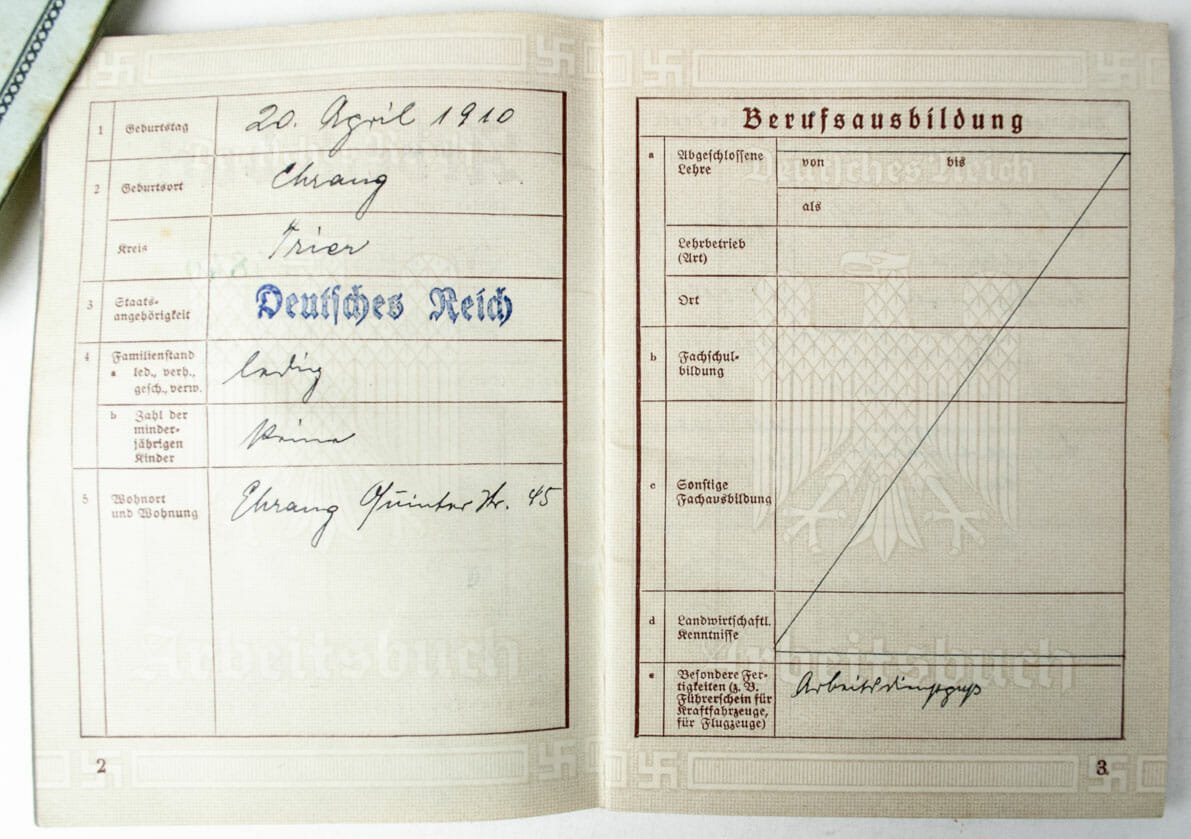 1 Geburtstag 20. April 1910
2 Geburtsort Ehrang
Kreis Trier
3 Staats-
angehörigkeit Deutsches Reich
4 Familienstand
a led., verh.,
gesch., verw. ledig
b Zahl der
minder-
jährigen
Kinder keine
5 Wohnort
und Wohnung Ehrang Quinter Str. 45
Arbeitsbuch
2
Berufsausbildung
a Abgeschlossene
Lehre
von bis
Deutsches Reich
als
Lehrbetrieb
(Art)
Ort
b Fachschul-
bildung
c Sonstige
Fachausbildung
d Landwirtschaftl.
Kenntnisse
Arbeitsbuch
e Besondere Fer-
tigkeiten (z. B.
Führerschein für
Kraftfahrzeuge,
für Flugzeuge)
Arbeitsdienstpaß
3